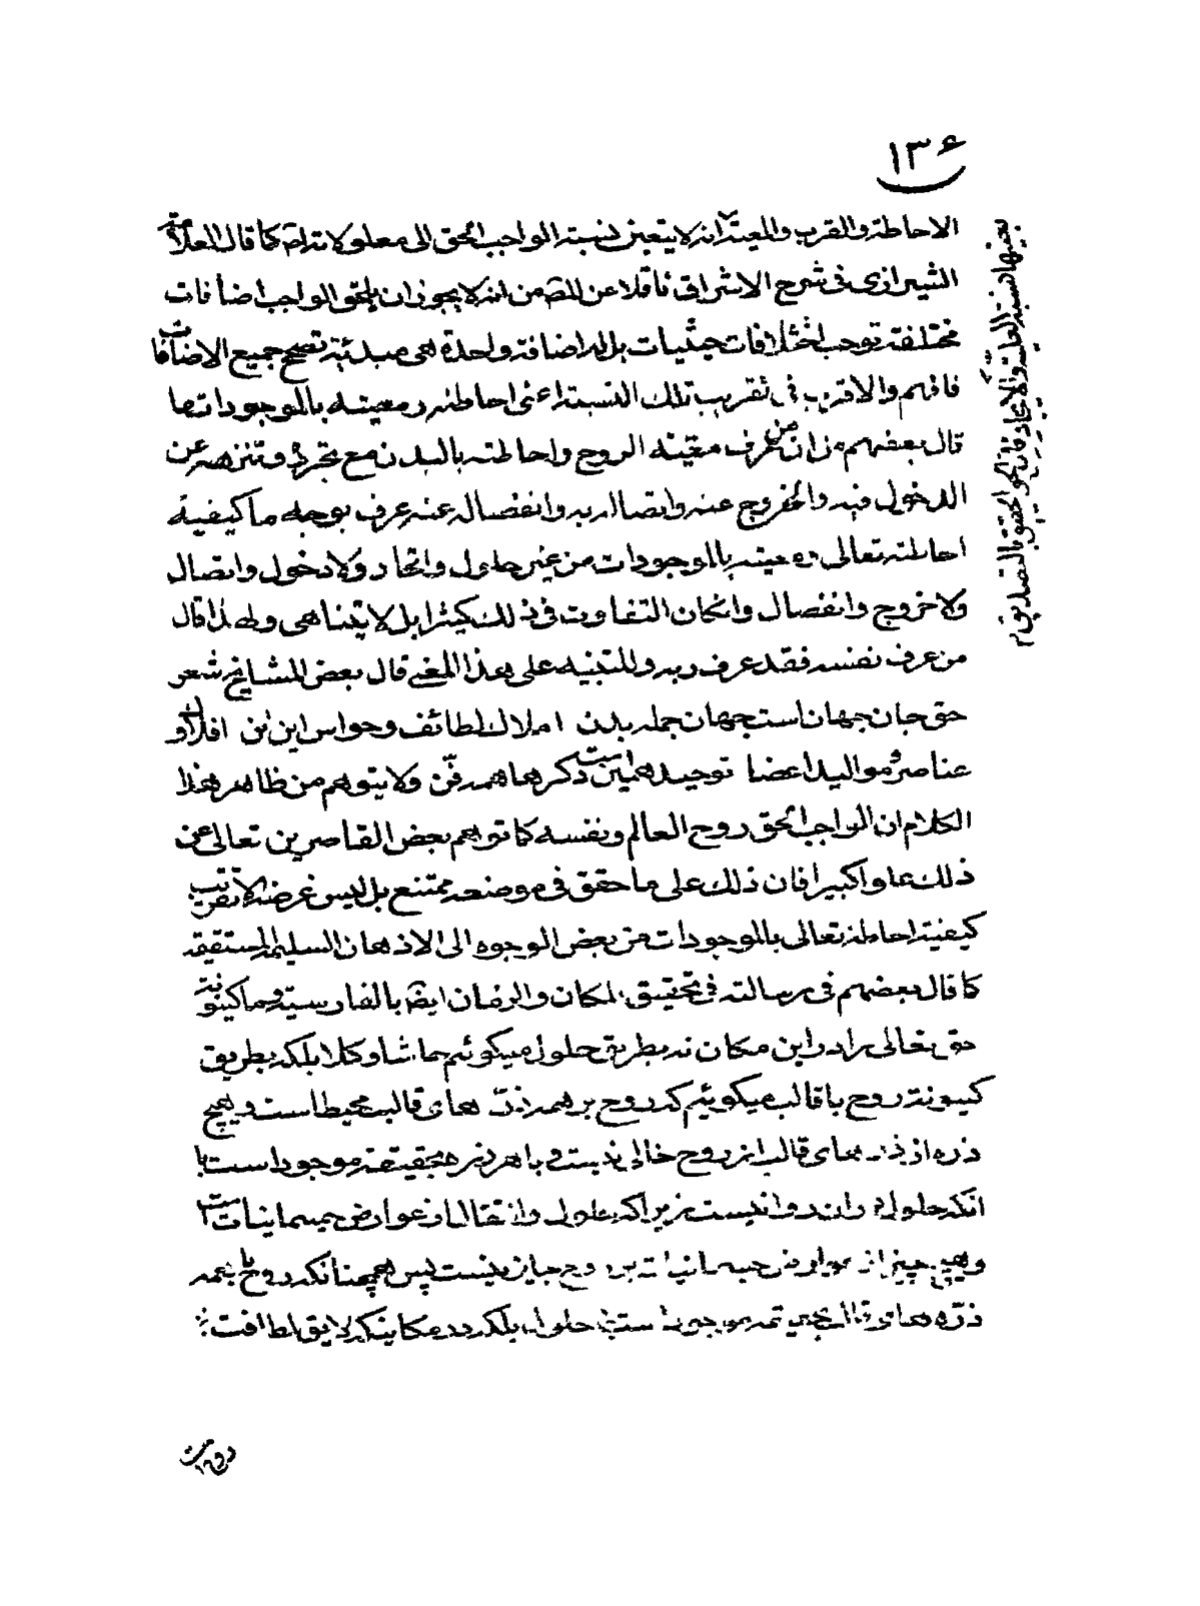 ۱۳۶
الاحاطة والقرب والمعية انه لا يتعين لنسبة الواجب الحق الى معلولاته كما قال العلامة
الشيرازى فى شرح الاشراق ناقلا عن المص من انه لا يجوز ان يلحق الواجب اضافات
مختلفة توجب اختلافات حيثيات بل له اضافة واحدة هى مبدئية تصحح جميع الاضافات
فافهم والاقرب فى تقريب تلك النسبة اعنى احاطته ومعيته بالموجودات ما
قال بعضهم من ان من عرف معية الروح واحاطته بالبدن مع تجرده وتنزهه عن
الدخول فيه والخروج عنه واتصاله به وانفصاله عنه عرف بوجه ما كيفية
احاطته تعالى ومعيته بالموجودات من غير حلول واتحاد ولا دخول واتصال
ولا خروج وانفصال وان كان التفاوت فى ذلك كثيرا بل لا يتناهى ولهذا قال
من عرف نفسه فقد عرف ربه وللتنبيه على هذا المعنى قال بعض المشايخ شعر
حق جان جهان است جهان جمله بدن املاك لطائف وحواس اين تن افلاك و
عناصر و مواليد اعضا توحيد همين است دكرها همه فن ولا يتوهم من ظاهر هذا
الكلام ان الواجب الحق روح العالم ونفسه كما توهم بعض القاصرين تعالى عن
ذلك علوا كبيرا فان ذلك على ما حقق فى موضعه ممتنع بل ليس غرضه الا تقريب
كيفية احاطته تعالى بالموجودات من بعض الوجوه الى الاذهان السليمة المستقيمة
كما قال بعضهم فى رسالته فى تحقيق المكان والزمان ايضا بالفارسية وما كينونة
حق تعالى را در اين مكان نه بطريق حلول ميكوئيم حاشا وكلا بلكه بطريق
كينونة روح با قالب ميكوئيم كه روح بر همه ذره هاى قالب محيط است و هيچ
ذره از ذره هاى قالب از روح خالى نيست و با هر ذره بحقيقت موجود است با
انكه حلول در او روا نيست زيرا كه حلول وانتقال از عوارض جسمانيات است
وهيچ چيز از عوارض جسمانيات بر روح جايز نيست پس همچنانكه روح با همه
ذره هاى قالب بحقيقت موجود است نه حلول بلكه در مكانيكه لايق لطافت
بعينها نسبة العلية والايجاد فان الحق الحقيق بالتصديق